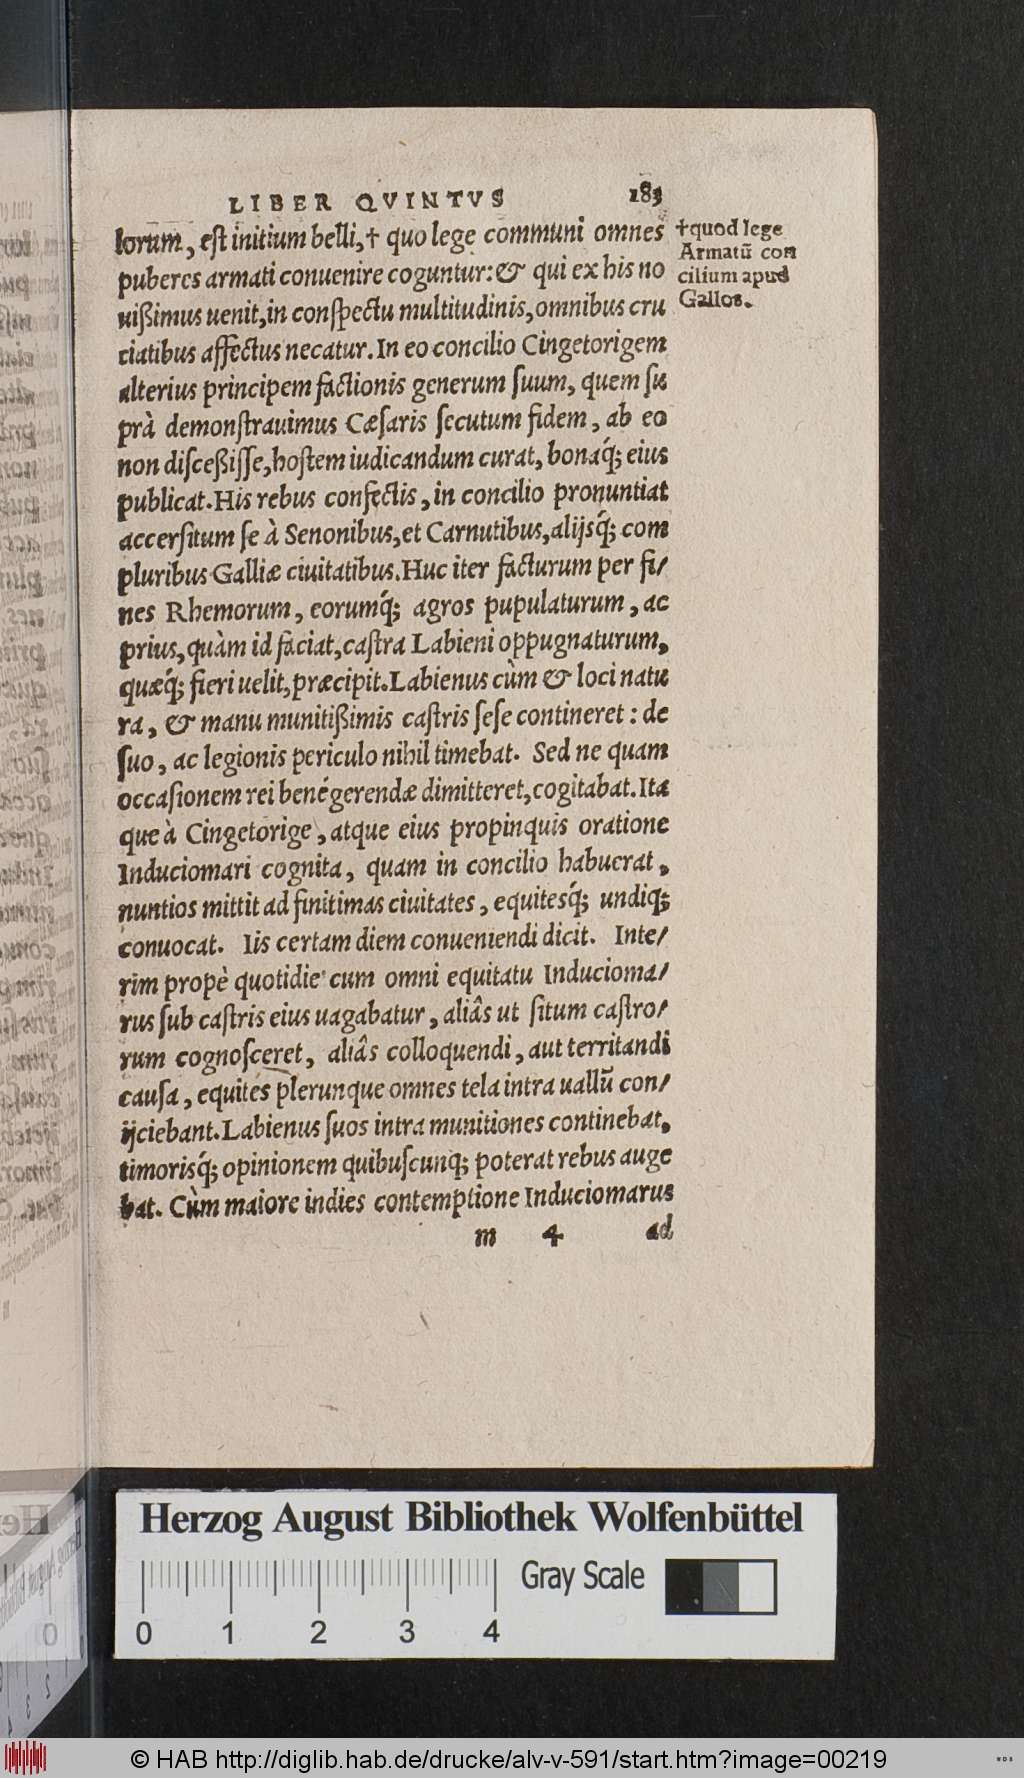 LIBER QVINTVS 183
lorum, eſt initium belli,† quo lege communi omnes
puberes armati conuenire coguntur: & qui ex his no
uißimus uenit, in conſpectu multitudinis, omnibus cru
ciatibus affectus necatur. In eo concilio Cingetorigem
alterius principem factionis generum ſuum, quem ſu
prà demonſtrauimus Cæſaris ſecutum fidem, ab eo
non diſceßiſſe, hoſtem iudicandum curat, bonaq́; eius
publicat. His rebus confectis, in concilio pronuntiat
accerſitum ſe à Senonibus, et Carnutibus, alijsq́; com
pluribus Galliæ ciuitatibus. Huc iter facturum per fi/
nes Rhemorum, eorumq́; agros pupulaturum, ac
prius, quàm id faciat, caſtra Labieni oppugnaturum,
quæq́; fieri uelit, præcipit. Labienus cùm & loci natu
ra, & manu munitißimis caſtris ſeſe contineret: de
ſuo, ac legionis periculo nihil timebat. Sed ne quam
occaſionem rei bené gerendæ dimitteret, cogitabat. Ita
que à Cingetorige, atque eius propinquis oratione
Induciomari cognita, quam in concilio habuerat,
nuntios mittit ad finitimas ciuitates, equitesq́; undiq;
conuocat. Iis certam diem conueniendi dicit. Inte/
rim propè quotidie cum omni equitatu Inducioma/
rus ſub caſtris eius uagabatur, aliâs ut ſitum caſtro/
rum cognoſceret, aliâs colloquendi, aut territandi
cauſa, equites plerunque omnes tela intra uallũ con/
ijciebant. Labienus ſuos intra munitiones continebat,
timorisq́; opinionem quibuſcunq; poterat rebus auge
bat. Cùm maiore indies contemptione Induciomarus
m 4 ad
†quod lege
Armatũ con
cilium apud
Gallos.
Herzog August Bibliothek Wolfenbüttel
Gray Scale
0 1 2 3 4
© HAB http://diglib.hab.de/drucke/alv-v-591/start.htm?image=00219